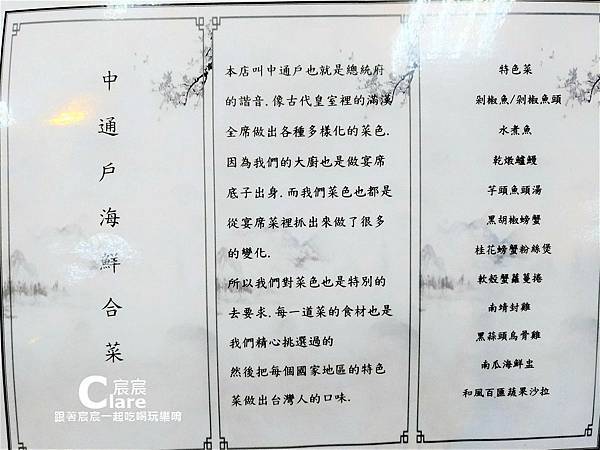 中通戶海鮮合菜
本店叫中通戶也就是總統府
的諧音.像古代皇室裡的滿漢
全席做出各種多樣化的菜色.
因為我們的大廚也是做宴席
底子出身.而我們菜色也都是
從宴席菜裡抓出來做了很多
的變化.
所以我們對菜色也是特別的
去要求.每一道菜的食材也是
我們精心挑選過的
然後把每個國家地區的特色
菜做出台灣人的口味.
特色菜
剁椒魚/剁椒魚頭
水煮魚
乾燉鱸鰻
芋頭魚頭湯
黑胡椒螃蟹
桂花螃蟹粉絲煲
軟殼蟹蘿蔓捲
南靖封雞
黑蒜頭烏骨雞
南瓜海鮮盅
和風百匯蔬果沙拉
Clare 宸宸
跟著宸宸一起吃喝玩樂唷